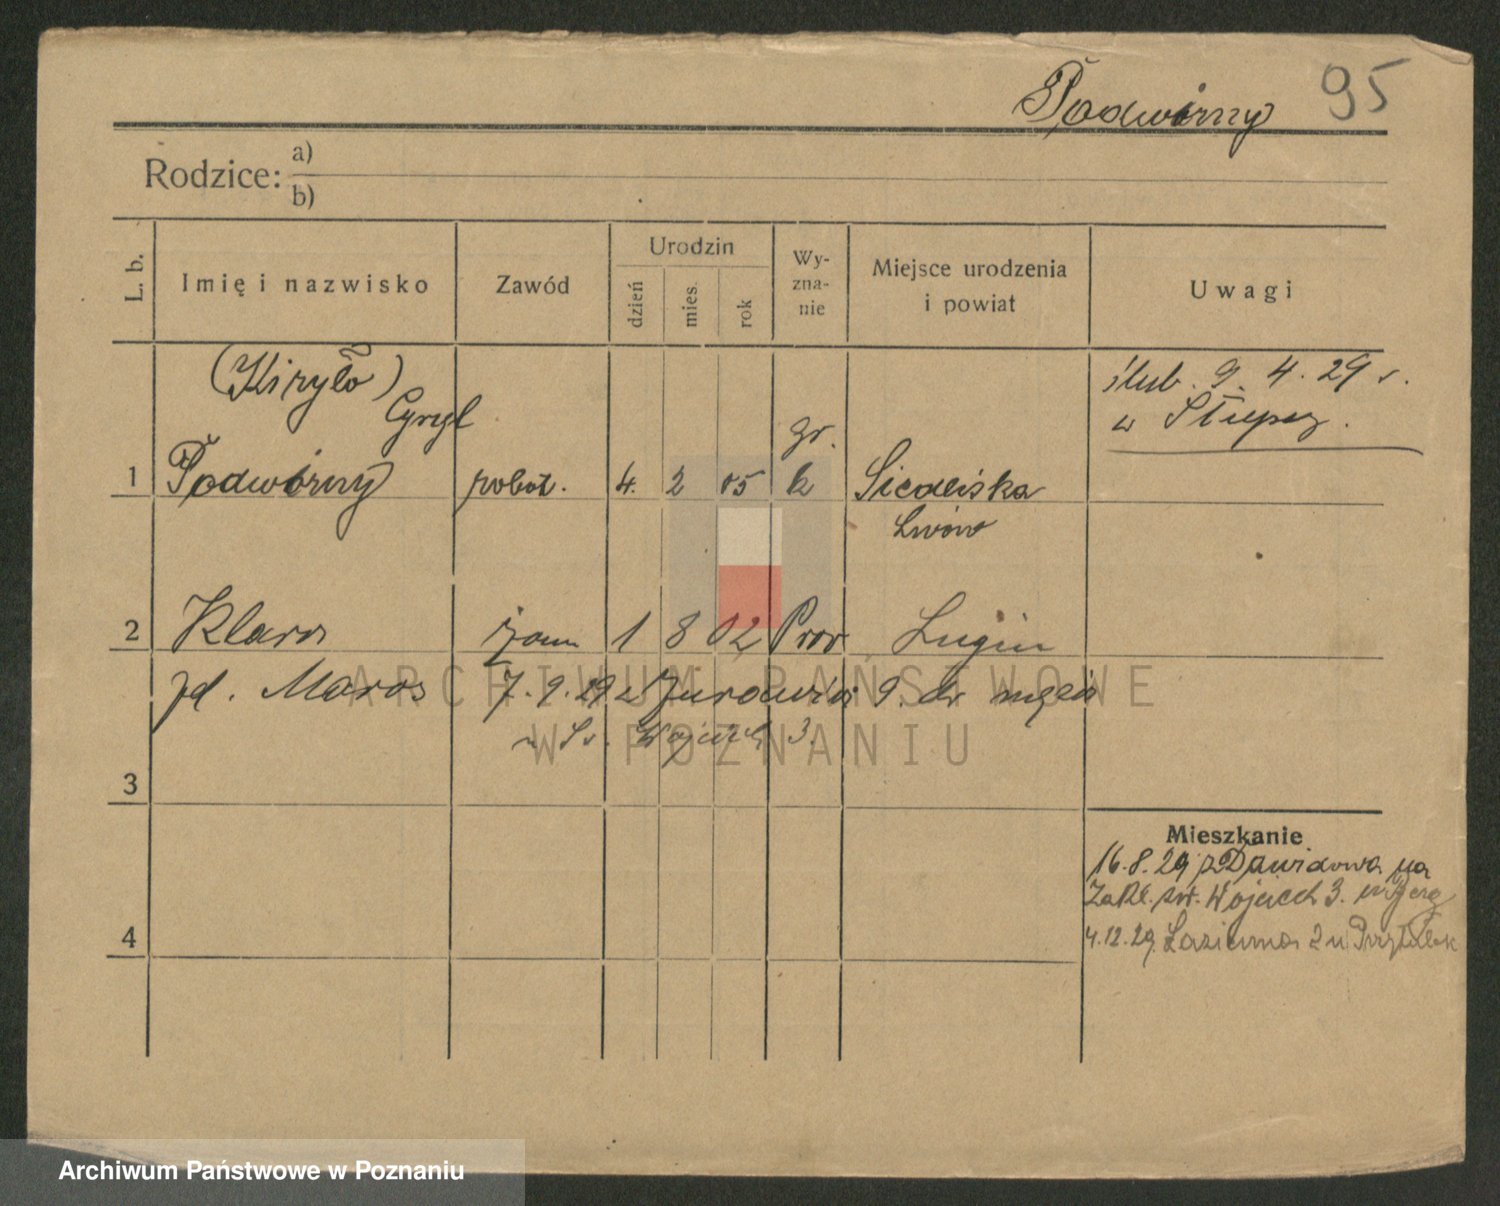 Podwórny 95
Rodzice: a)
b)
L. b.
Imię i nazwisko
Zawód
Urodzin
dzień
mies.
rok
Wy-
zna-
nie
Miejsce urodzenia
i powiat
Uwagi
(Kiryło)
Cyryl
1 Podwórny robot. 4. 2 05 gr. k Siedliska
Lwów
ślub. 9. 4. 29 r.
w
2 Klara żona 1 8 02 Lugin
zd. Maros 7. 9. 29 z 9. do męża
Wojciech 3.
3
Mieszkanie
16.8.29 z Dawidowa na
Zakl. św. Wojciech 3.
4
4.12.29. Łazienna 2 u
ARCHIWUM PAŃSTWOWE
W POZNANIU
Archiwum Państwowe w Poznaniu